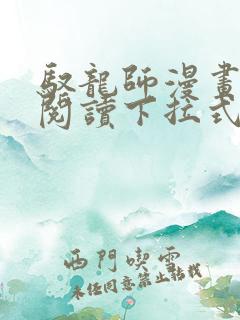 馭龍師漫畫
閱讀下拉式
西門喫雲
未經同意禁止轉載